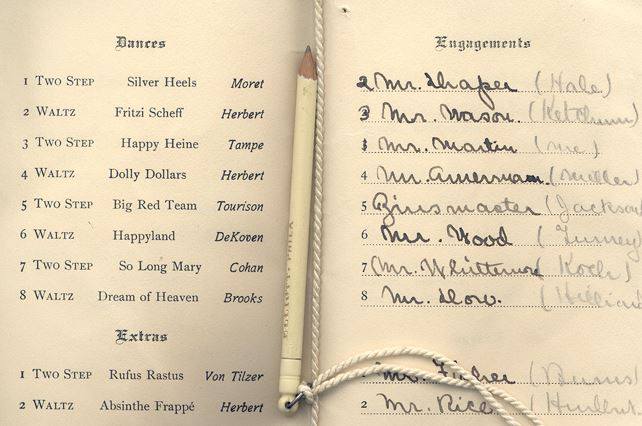 Dances
1 Two Step Silver Heels Moret
2 Waltz Fritzi Scheff Herbert
3 Two Step Happy Heine Tampe
4 Waltz Dolly Dollars Herbert
5 Two Step Big Red Team Tourison
6 Waltz Happyland DeKoven
7 Two Step So Long Mary Cohan
8 Waltz Dream of Heaven Brooks
Extras
1 Two Step Rufus Rastus Von Tilzer
2 Waltz Absinthe Frappé Herbert
Engagements
2 Mr. Draper (Hale)
3 Mr. Wason. (Ketchum)
1 Mr. Martin (me)
4 Mr. Amerman. (Miller)
5 Binsmaster (Jackson)
6 Mr. Wood (
7 Mr. Whittemore (Koch)
8 Mr. Dow. (
Mr. Fisher (Burns)
2 Mr. Rice (